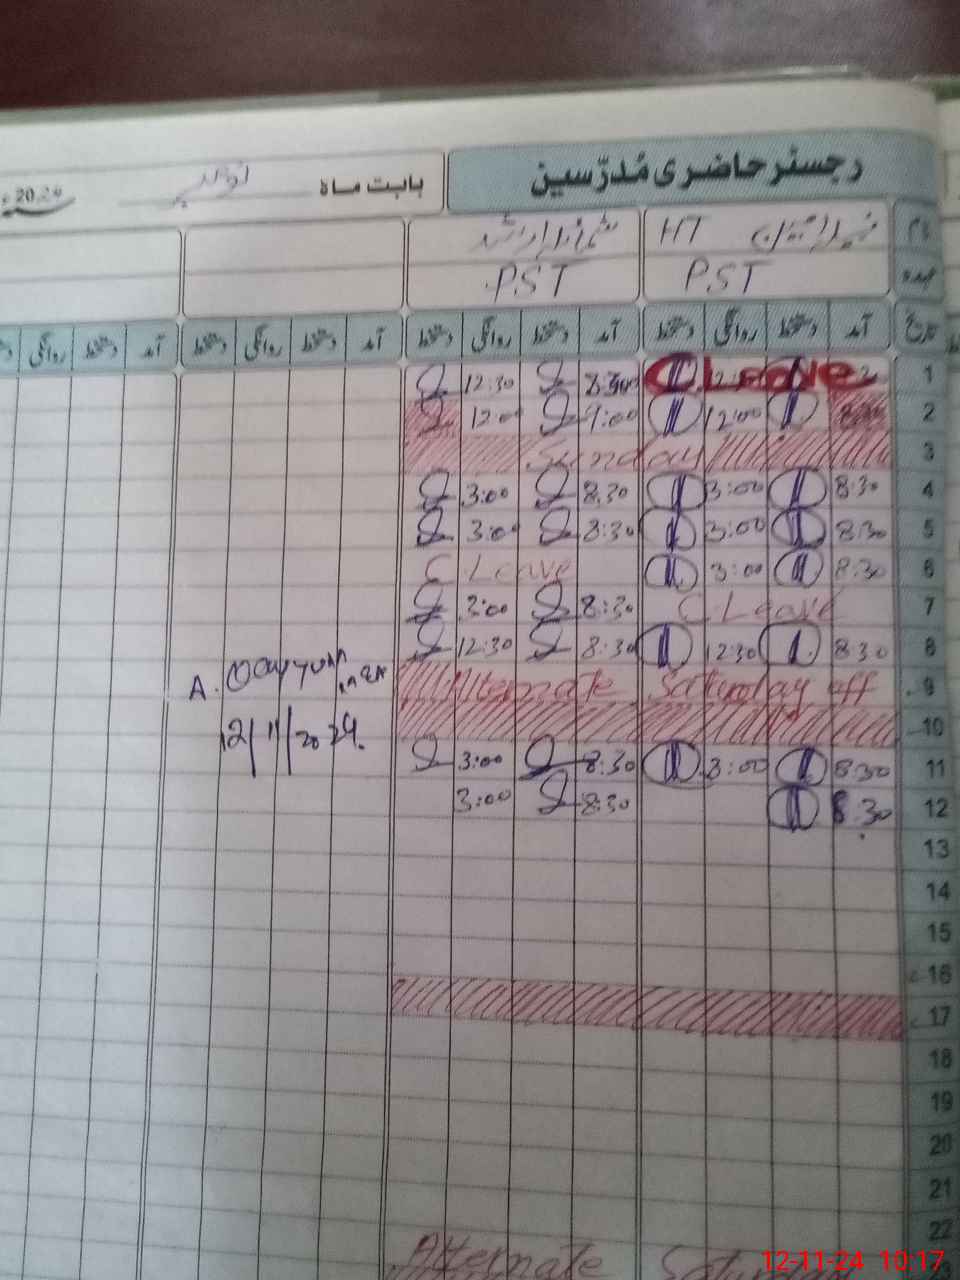 رجسٹر حاضری مُدرّسین
بابت ماہ نومبر 2024ء
نام HT
عہدہ PST PST
تاریخ آمد دستخط روانگی دستخط آمد دستخط روانگی دستخط آمد دستخط روانگی دستخط آمد دستخط روانگی
1 C Leave 8:30 12:30
2 12:00 9:00 12:00
3 Sunday
4 8:30 3:00 8:30 3:00
5 8:30 3:00 8:30 3:00
6 8:30 3:00 C Leave
7 C Leave 8:30 3:00
8 8:30 12:30 8:30 12:30
9 Alternate Saturday off
10
11 8:30 3:00 8:30 3:00
12 8:30 8:30 3:00
A. Qayyum
12/11/2024.
13
14
15
16
17
18
19
20
21
22
Alternate
12-11-24 10:17